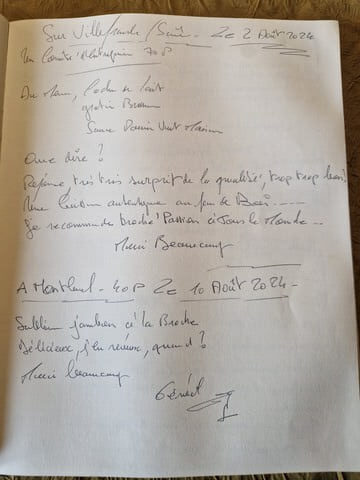 Sur Villefranche / Saô - Le 2 Août 2024
Un Comité d'entreprise 70 P
Au Menu, Cochon de lait
gratin
Sauce Maison
Que dire ?
très très surpris de la qualité, trop trop bon!
Une Cuisson authentique au feu de Bois.....
Je recommande broche' Passion à Tous le Monde...
Merci Beaucoup
A Montluel - 40 P Le 10 Août 2024 -
Sublime jambon à la Broche
Délicieux, j'en reveux, quand ?
Merci beaucoup